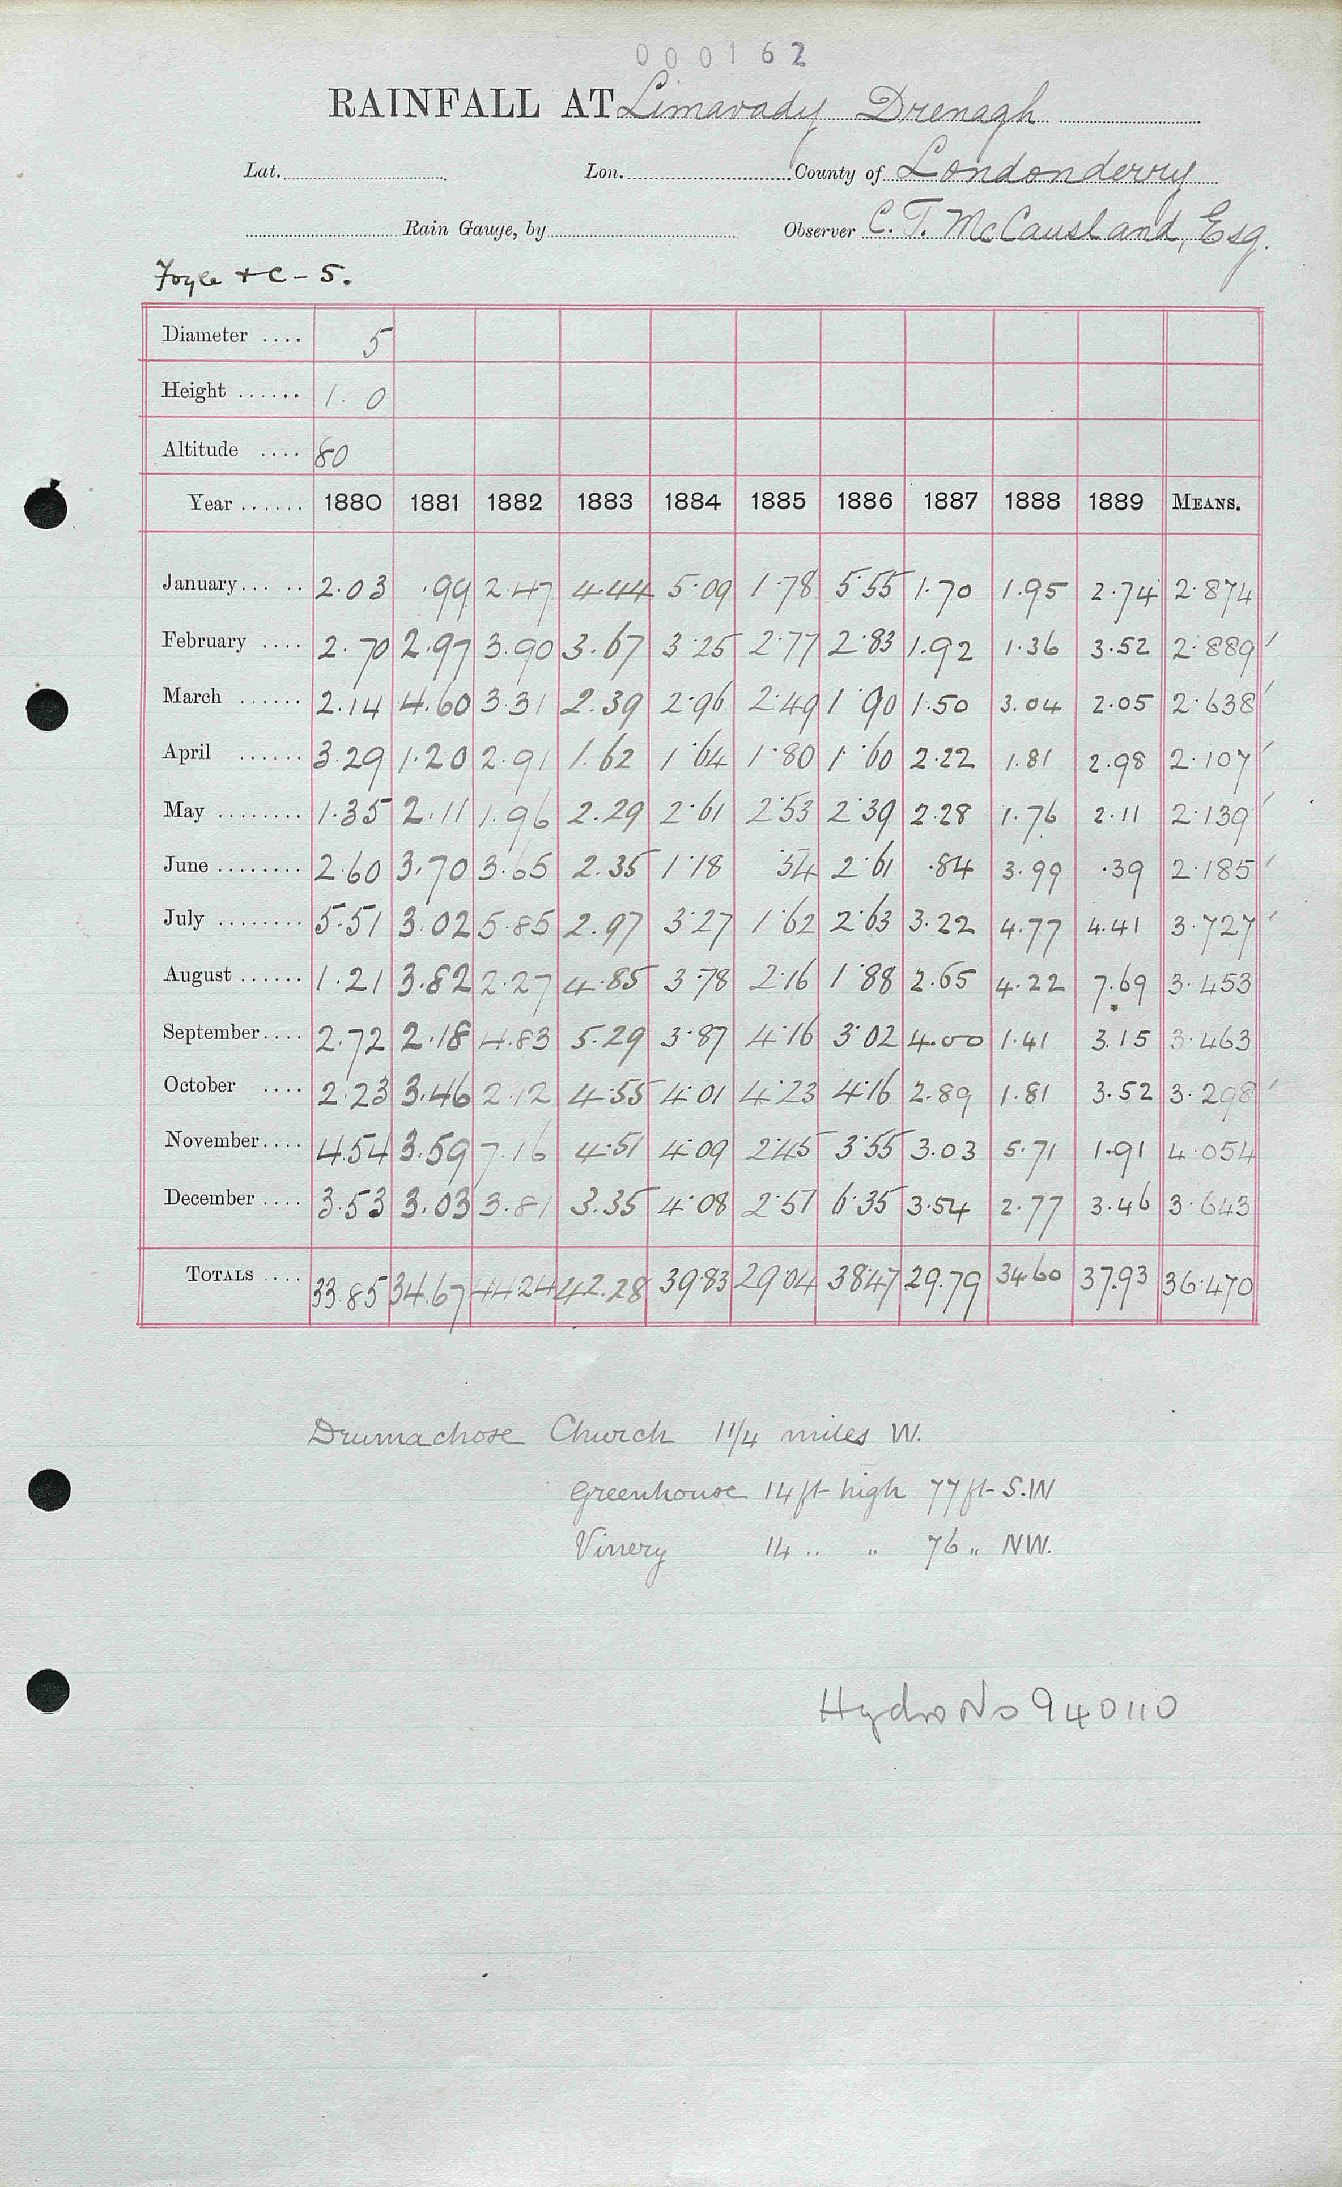 000162
RAINFALL AT Limavady Drenagh
Lat. Lon. County of Londonderry
Rain Gauge, by Observer C. T. McCausland, Esq.
Foyle + C - 5.
Diameter .... 5
Height ...... 1. 0
Altitude .... 80
Year ...... 1880 1881 1882 1883 1884 1885 1886 1887 1888 1889 MEANS.
January... .. 2.03 .99 2.47 4.44 5.09 1.78 5.55 1.70 1.95 2.74 2.874
February .... 2.70 2.97 3.90 3.67 3.25 2.77 2.83 1.92 1.36 3.52 2.889
March ...... 2.14 4.60 3.31 2.39 2.96 2.49 1.90 1.50 3.04 2.05 2.638
April ...... 3.29 1.20 2.91 1.62 1.64 1.80 1.60 2.22 1.81 2.98 2.107
May ........ 1.35 2.11 1.96 2.29 2.61 2.53 2.39 2.28 1.76 2.11 2.139
June ........ 2.60 3.70 3.65 2.35 1.18 .54 2.61 .84 3.99 .39 2.185
July ........ 5.51 3.02 5.85 2.97 3.27 1.62 2.63 3.22 4.77 4.41 3.727
August ...... 1.21 3.82 2.27 4.85 3.78 2.16 1.88 2.65 4.22 7.69 3.453
September .... 2.72 2.18 4.83 5.29 3.87 4.16 3.02 4.00 1.41 3.15 3.463
October .... 2.23 3.46 2.12 4.55 4.01 4.23 4.16 2.89 1.81 3.52 3.298
November.... 4.54 3.59 7.16 4.51 4.09 2.45 3.55 3.03 5.71 1.91 4.054
December .... 3.53 3.03 3.81 3.35 4.08 2.51 6.35 3.54 2.77 3.46 3.643
TOTALS .... 33.85 34.67 44.24 42.28 39.83 29.04 38.47 29.79 34.60 37.93 36.470
Drumachose Church 1 1/4 miles W.
Greenhouse 14 ft high 77 ft S.W
Vinery 14 " " 76 " NW.
Hydro No 940110